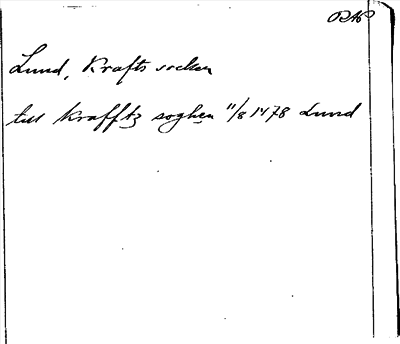 RAP
Lund, Krafts socken
till Krafftz soghen 11/8 1478 Lund